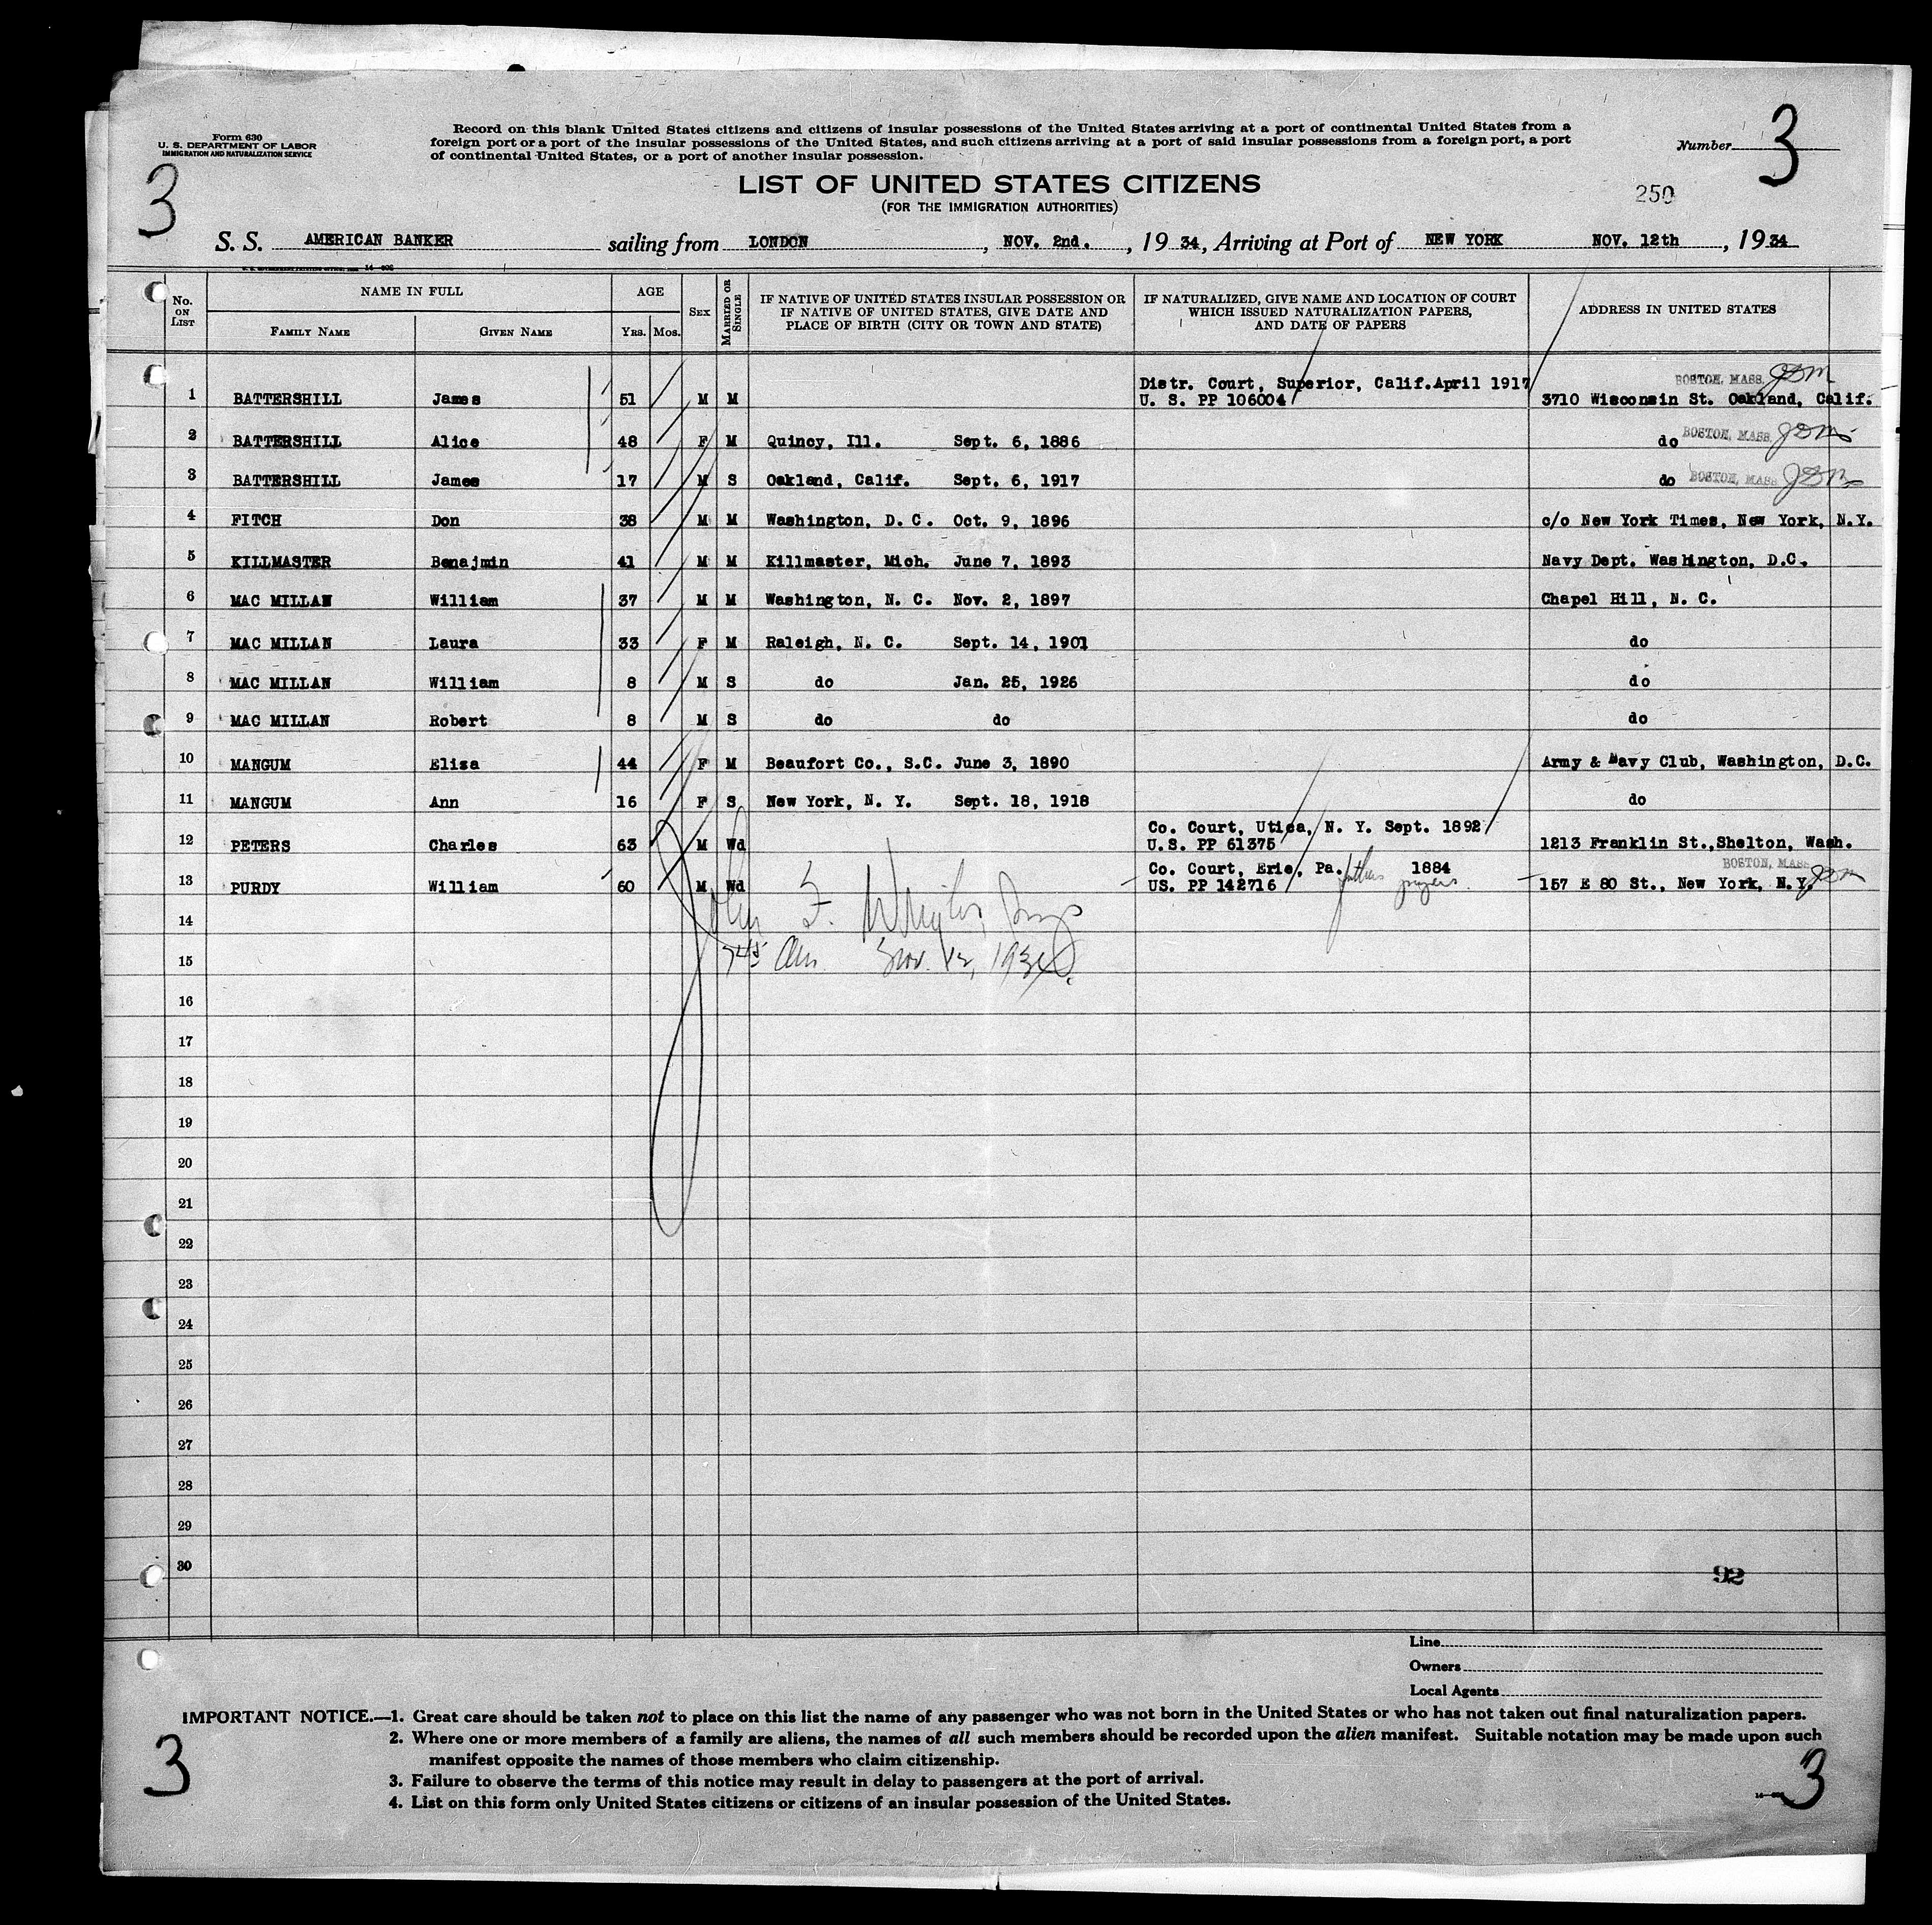 Form 630
U. S. DEPARTMENT OF LABOR
IMMIGRATION AND NATURALIZATION SERVICE
Record on this blank United States citizens and citizens of insular possessions of the United States arriving at a port of continental United States from a
foreign port or a port of the insular possessions of the United States, and such citizens arriving at a port of said insular possessions from a foreign port, a port
of continental United States, or a port of another insular possession.
Number 3
3
LIST OF UNITED STATES CITIZENS
(FOR THE IMMIGRATION AUTHORITIES)
250
S. S. AMERICAN BANKER sailing from LONDON, NOV. 2nd., 1934, Arriving at Port of NEW YORK NOV. 12th, 1934
No. ON LIST
NAME IN FULL
FAMILY NAME
GIVEN NAME
AGE
YRS. MOS.
SEX
MARRIED OR SINGLE
IF NATIVE OF UNITED STATES INSULAR POSSESSION OR
IF NATIVE OF UNITED STATES, GIVE DATE AND
PLACE OF BIRTH (CITY OR TOWN AND STATE)
IF NATURALIZED, GIVE NAME AND LOCATION OF COURT
WHICH ISSUED NATURALIZATION PAPERS,
AND DATE OF PAPERS
ADDRESS IN UNITED STATES
Distr. Court, Superior, Calif. April 1917 BOSTON, MASS.
1 BATTERSHILL James 51 M M U. S. PP 106004 3710 Wisconsin St. Oakland, Calif.
2 BATTERSHILL Alice 48 F M Quincy, Ill. Sept. 6, 1886 do BOSTON, MASS.
3 BATTERSHILL James 17 M S Oakland, Calif. Sept. 6, 1917 do BOSTON, MASS.
4 FITCH Don 38 M M Washington, D. C. Oct. 9, 1896 c/o New York Times, New York, N.Y.
5 KILLMASTER Benajmin 41 M M Killmaster, Mich. June 7, 1893 Navy Dept. Washington, D.C.
6 MAC MILLAN William 37 M M Washington, N. C. Nov. 2, 1897 Chapel Hill, N. C.
7 MAC MILLAN Laura 33 F M Raleigh, N. C. Sept. 14, 1901 do
8 MAC MILLAN William 8 M S do Jan. 25, 1926 do
9 MAC MILLAN Robert 8 M S do do do
10 MANGUM Elisa 44 F M Beaufort Co., S.C. June 3, 1890 Army & Navy Club, Washington, D.C.
11 MANGUM Ann 16 F S New York, N. Y. Sept. 18, 1918 do
Co. Court, Utica, N. Y. Sept. 1892
12 PETERS Charles 63 M Wd U.S. PP 61375 1213 Franklin St., Shelton, Wash.
Co. Court, Erie, Pa. 1884 BOSTON, MASS.
13 PURDY William 60 M Wd US. PP 142716 157 E 80 St., New York, N.Y.
14
15 Nov. 12, 1934
16
17
18
19
20
21
22
23
24
25
26
27
28
29
30
92
Line
Owners
Local Agents
IMPORTANT NOTICE.—1. Great care should be taken not to place on this list the name of any passenger who was not born in the United States or who has not taken out final naturalization papers.
2. Where one or more members of a family are aliens, the names of all such members should be recorded upon the alien manifest. Suitable notation may be made upon such
manifest opposite the names of those members who claim citizenship.
3. Failure to observe the terms of this notice may result in delay to passengers at the port of arrival.
4. List on this form only United States citizens or citizens of an insular possession of the United States.
3
3